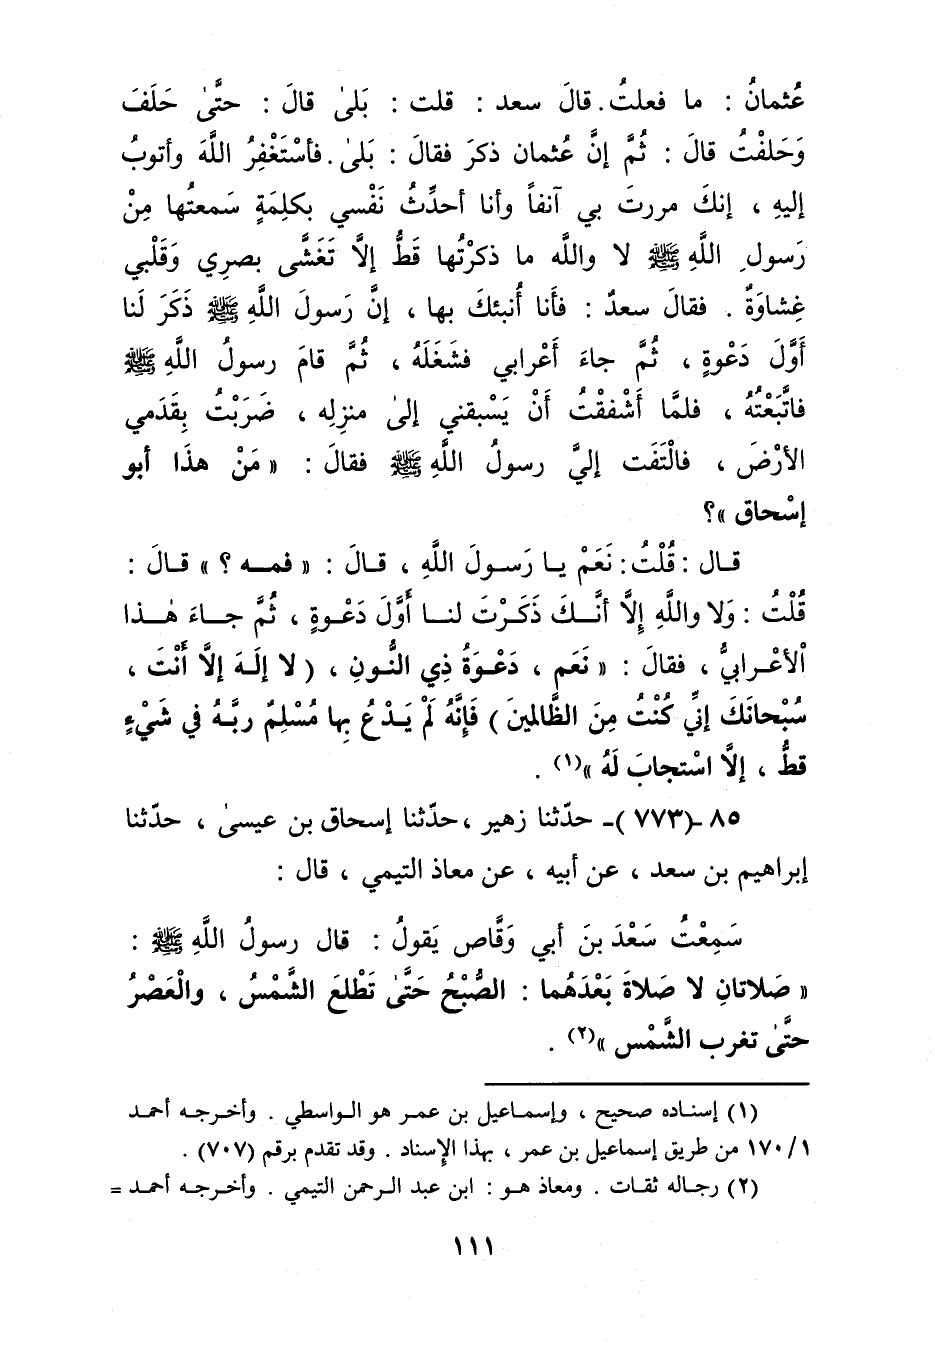 عُثمانُ : ما فعلتُ. قالَ سعد : قلت : بَلىٰ قالَ : حتَّىٰ حَلَفَ
وَحَلفْتُ قالَ : ثُمَّ إنَّ عُثمان ذكرَ فقالَ : بَلىٰ. فأسْتَغْفِرُ اللَّهَ وأتوبُ
إليهِ ، إنكَ مررتَ بي آنفاً وأنا أحدِّثُ نَفْسي بكلِمَةٍ سَمعتُها مِنْ
رَسولِ اللَّهِ ﷺ لا واللَّه ما ذكرْتُها قَطُّ إلَّا تَغَشَّى بصرِي وَقَلْبي
غِشاوَةٌ . فقالَ سعدٌ : فأنا أُنبئكَ بها ، إنَّ رَسولَ اللَّهِ ﷺ ذَكَرَ لَنا
أَوَّلَ دَعْوةٍ ، ثُمَّ جاءَ أَعْرابي فشَغَلَهُ ، ثُمَّ قامَ رسولُ اللَّهِ ﷺ
فاتَّبَعْتُهُ ، فلمَّا أَشْفقْتُ أَنْ يَسْبقني إلىٰ منزِلِه ، ضَرَبْتُ بِقَدَمي
الأرْضَ ، فالْتَفَت إليَّ رسولُ اللَّهِ ﷺ فقالَ : « مَنْ هذَا أبو
إسْحاق »؟
قال : قُلْتُ : نَعَمْ يا رَسولَ اللَّهِ ، قالَ : « فمه ؟ » قالَ :
قُلْتُ : وَلا واللَّهِ إلَّا أنَّكَ ذَكَرْتَ لنا أَوَّلَ دَعْوةٍ ، ثُمَّ جاءَ هٰذا
اْلأعْرابيُّ ، فقالَ : « نَعَم ، دَعْوَةُ ذِي النُّونِ ، ( لا إلَهَ إلَّا أَنْتَ ،
سُبْحانَكَ إنِّي كُنْتُ مِنَ الظَّالمينَ ) فَإنَّهُ لَمْ يَدْعُ بِها مُسْلِمٌ ربَّهُ في شَيْءٍ
قطُّ ، إلَّا اسْتجابَ لَهُ »(١) .
٨٥ -(٧٧٣)- حدّثنا زهير ، حدّثنا إسحاق بن عيسىٰ ، حدّثنا
إبراهيم بن سعد ، عن أبيه ، عن معاذ التيمي ، قال :
سَمِعْتُ سَعْدَ بنَ أبي وَقَّاص يَقولُ : قال رسولُ اللَّهِ ﷺ :
« صَلاتانِ لا صَلاةَ بَعْدَهُما : الصُّبْحُ حَتَّىٰ تَطْلعَ الشَّمْسُ ، والْعَصْرُ
حتَّىٰ تغرب الشَّمْس »(٢) .
(١) إسناده صحيح ، وإسماعيل بن عمر هو الواسطي . وأخرجه أحمد
١ / ١٧٠ من طريق إسماعيل بن عمر ، بهذا الإسناد . وقد تقدم برقم (٧٠٧) .
(٢) رجاله ثقات . ومعاذ هو : ابن عبد الرحمن التيمي . وأخرجه أحمد =
١١١